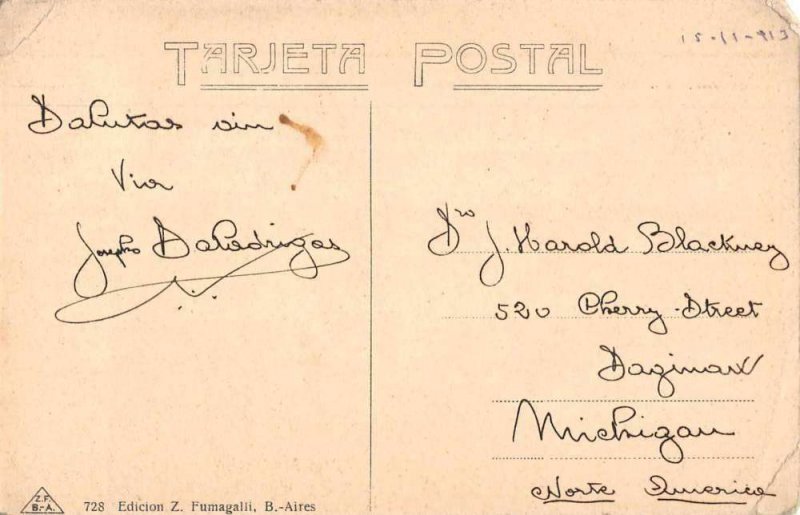 15-11-913
TARJETA POSTAL
Salutas vin
Via
Sro J. Harold Blackney
520 Cherry-Street
Saginaw
Michigan
Norte America
Z.F.
B.-A.
728 Edicion Z. Fumagalli, B.-Aires